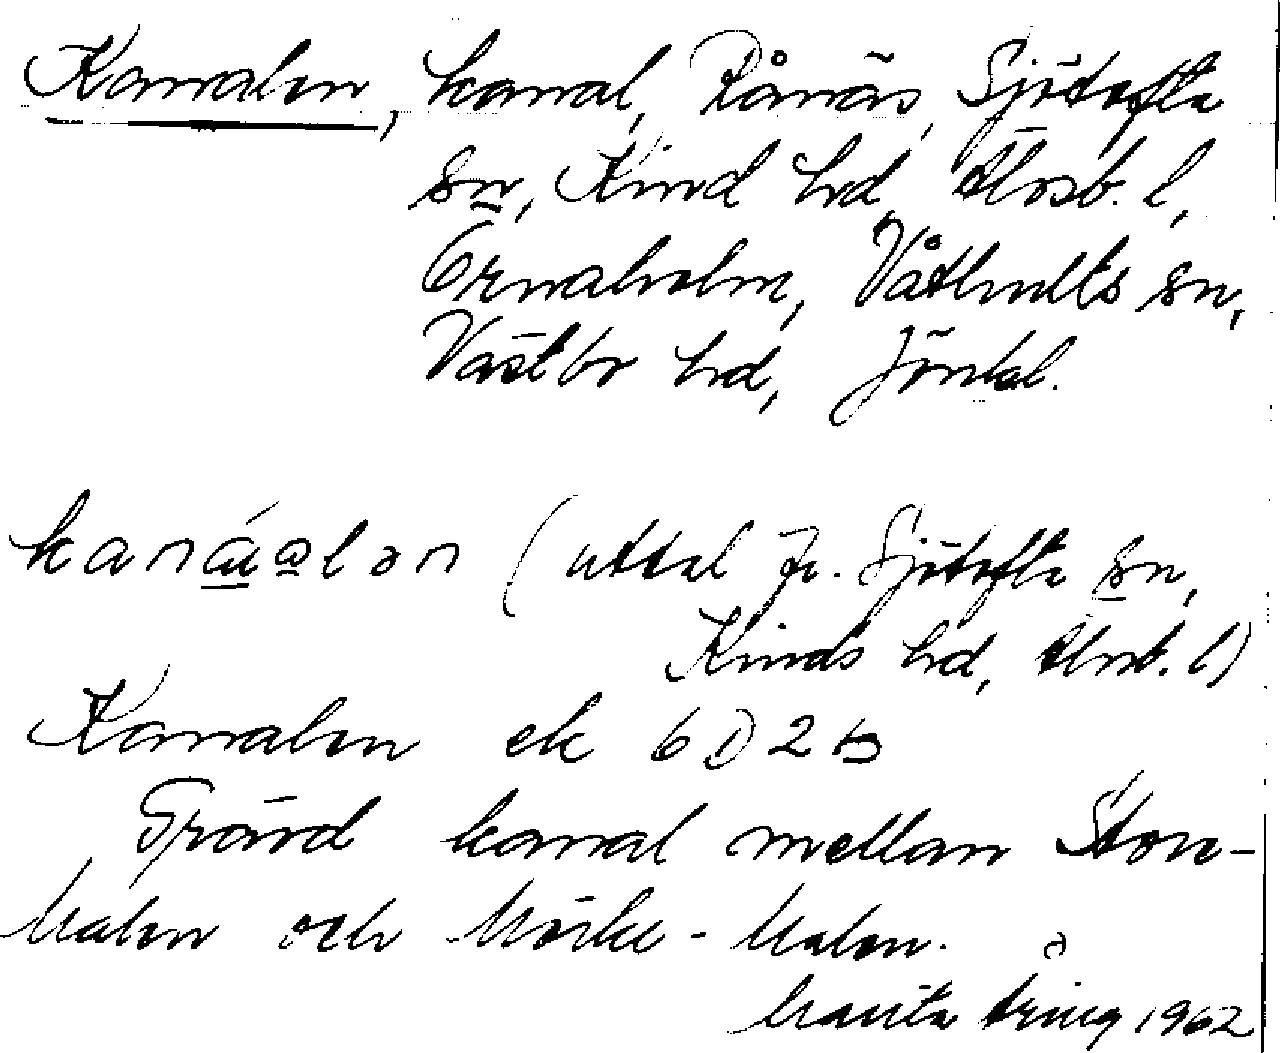 Kanalen, kanal, Rånäs, Sjötofta
sn, Kind hd, Älvsb. l,
Örnaholm, Våthults sn,
Västbo hd, Jönk.l.
kanáalən (uttal fr. Sjötofta sn,
Kinds hd, Älvsb. l)
Kanalen ek 6D2b
Grävd kanal mellan Stora-
Malen och Mörke-Malen.
Märta Åring 1962